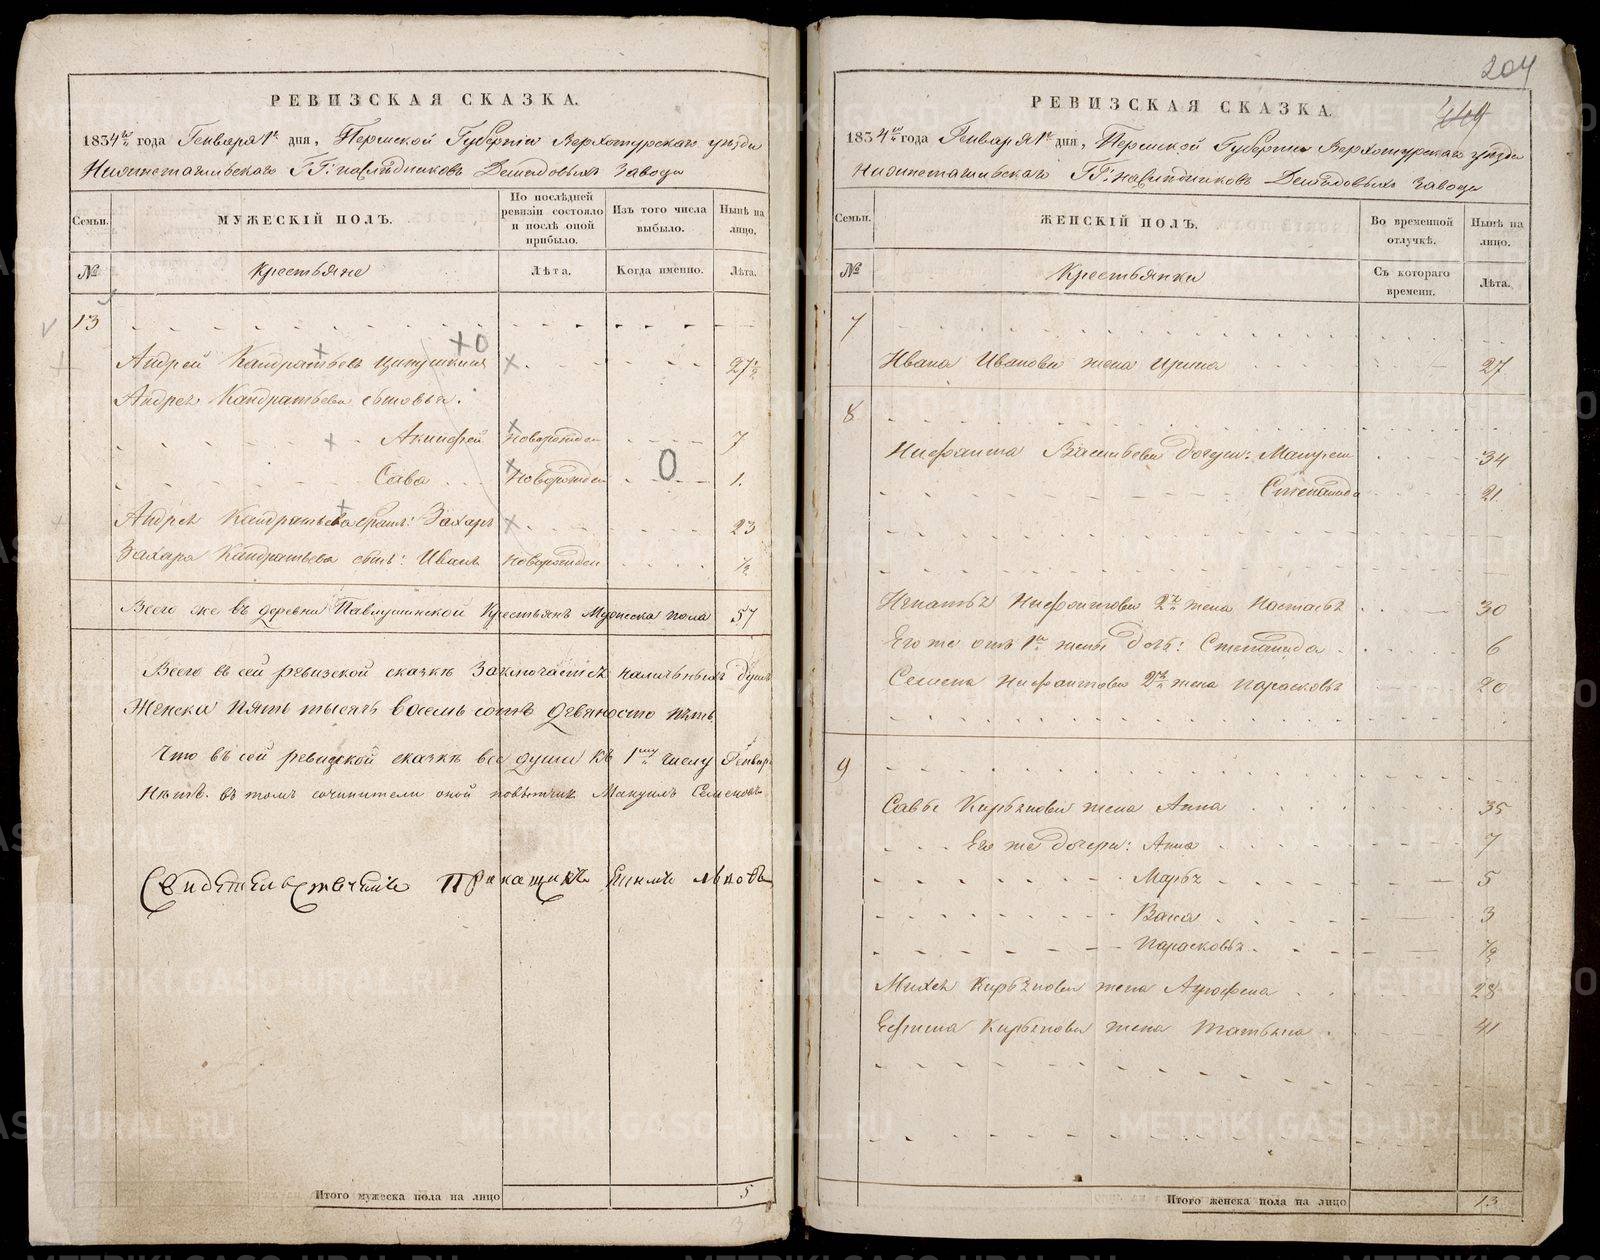 РЕВИЗСКАЯ СКАЗКА.
1834 года Генваря 1 дня, Пермской Губерніи Верхотурскаго уѣзда
Нижнетагильскаго ГГ: наслѣдниковъ Демидовыхъ завода
Семьи.
МУЖЕСКІЙ ПОЛЪ.
По послѣдней ревизіи состояло и послѣ оной прибыло.
Изъ того числа выбыло.
Нынѣ на лицо.
№
Крестьяне
Лѣта.
Когда именно.
Лѣта.
13
Андрей Кандратьевъ 27½
Андрея Кандратьева сыновья:
Акинфей новорожден 7
Сава Новорожден 1.
Андрея Кандратьева братъ: Захаръ 23
Захара Кандратьева сынъ: Иванъ новорожден ½
Всего же въ деревни Павлушинской Крестьянъ Мужеска пола 57
Всего въ сей ревизской сказкѣ Заключается наличныхъ душъ
Женска пять тысячь восемь сотъ девяносто пять
Что въ сей ревизской сказкѣ все души къ 1му числу Генвар
въ томъ сочинители оной Семеновъ
Свидетельствовалъ Прикащикъ
Итого мужеска пола на лицо 5
204
РЕВИЗСКАЯ СКАЗКА.
1834 года Генваря 1 дня, Пермской Губерніи Верхотурскаго уѣзда
Нижнетагильскаго ГГ: наслѣдниковъ Демидовыхъ завода
Семьи.
ЖЕНСКІЙ ПОЛЪ.
Во временной отлучкѣ.
Нынѣ на лицо.
№
Крестьянки
Съ котораго времени.
Лѣта.
7
Ивана Иванова жена Ирина 27
8
Нифанта Васильева дочери: 34
Степанида 21
Игнатья Нифантова 2я жена Настасья 30
Его же отъ 1й жены дочь: Степанида 6
Семена Нифантова 2я жена Парасковья 20
9
Савы Кирьянова жена Анна 35
Его же дочери: Анна 7
Марья 5
3
Парасковья ½
Михея Кирьянова жена Агрофена 28
Ефима Кирьянова жена Татьяна 41
Итого женска пола на лицо 13
METRIKI.GASO-URAL.RU